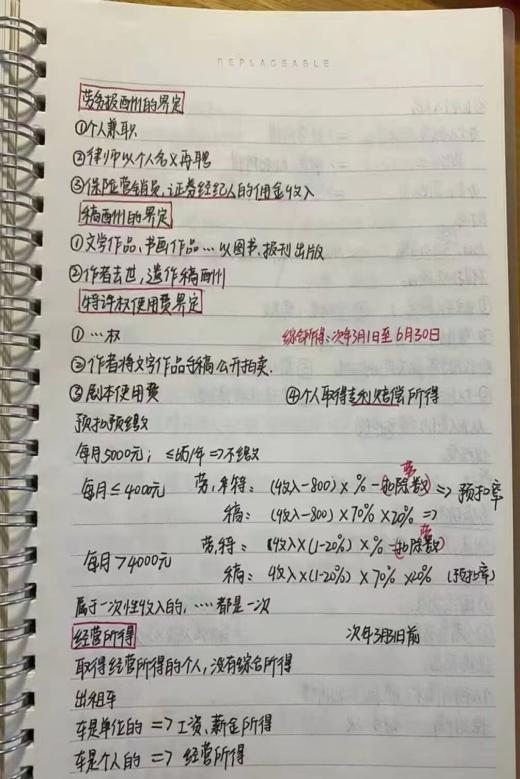 REPLACEABLE
劳务报酬的界定
①个人兼职
②律师以个人名义再聘
③保险营销员、证券经纪人的佣金收入
稿酬的界定
①文学作品、书画作品…以图书、报刊出版
②作者去世,遗作稿酬
特许权使用费界定
①…权 综合所得:次年3月1日至6月30日
②作者将文字作品手稿公开拍卖.
③剧本使用费 ④个人取得专利赔偿所得
预扣预缴
每月5000元; ≤6万/年=>不缴
每月≤4000元 劳、特: (收入-800)×%-扣除数 => 预扣率
劳
稿: (收入-800)×70%×20% =>
每月>4000元 劳、特: 收入×(1-20%)×%-扣除数)
劳
稿: 收入×(1-20%)×70%×20% (预扣率)
属于一次性收入的,…都是一次
经营所得 次年3月31日前
取得经营所得的个人,没有综合所得
出租车
车是单位的 => 工资、薪金所得
车是个人的 => 经营所得